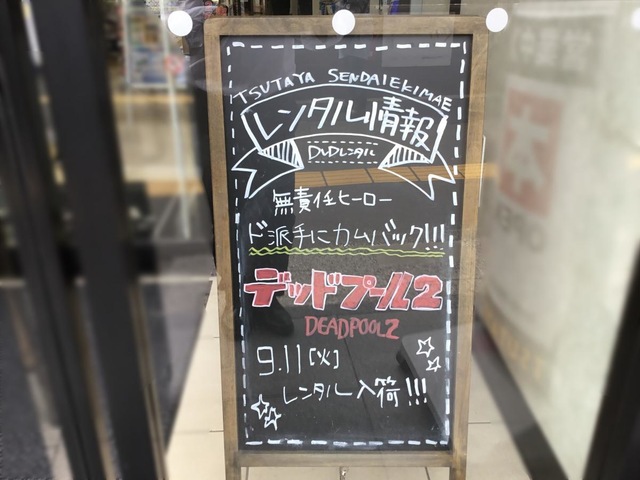 TSUTAYA SENDAIEKIMAE
レンタル情報
DVDレンタル
無責任ヒーロー
ド派手にカムバック!!!
デッドプール2
DEADPOOL2
9.11[火]
レンタル入荷!!!